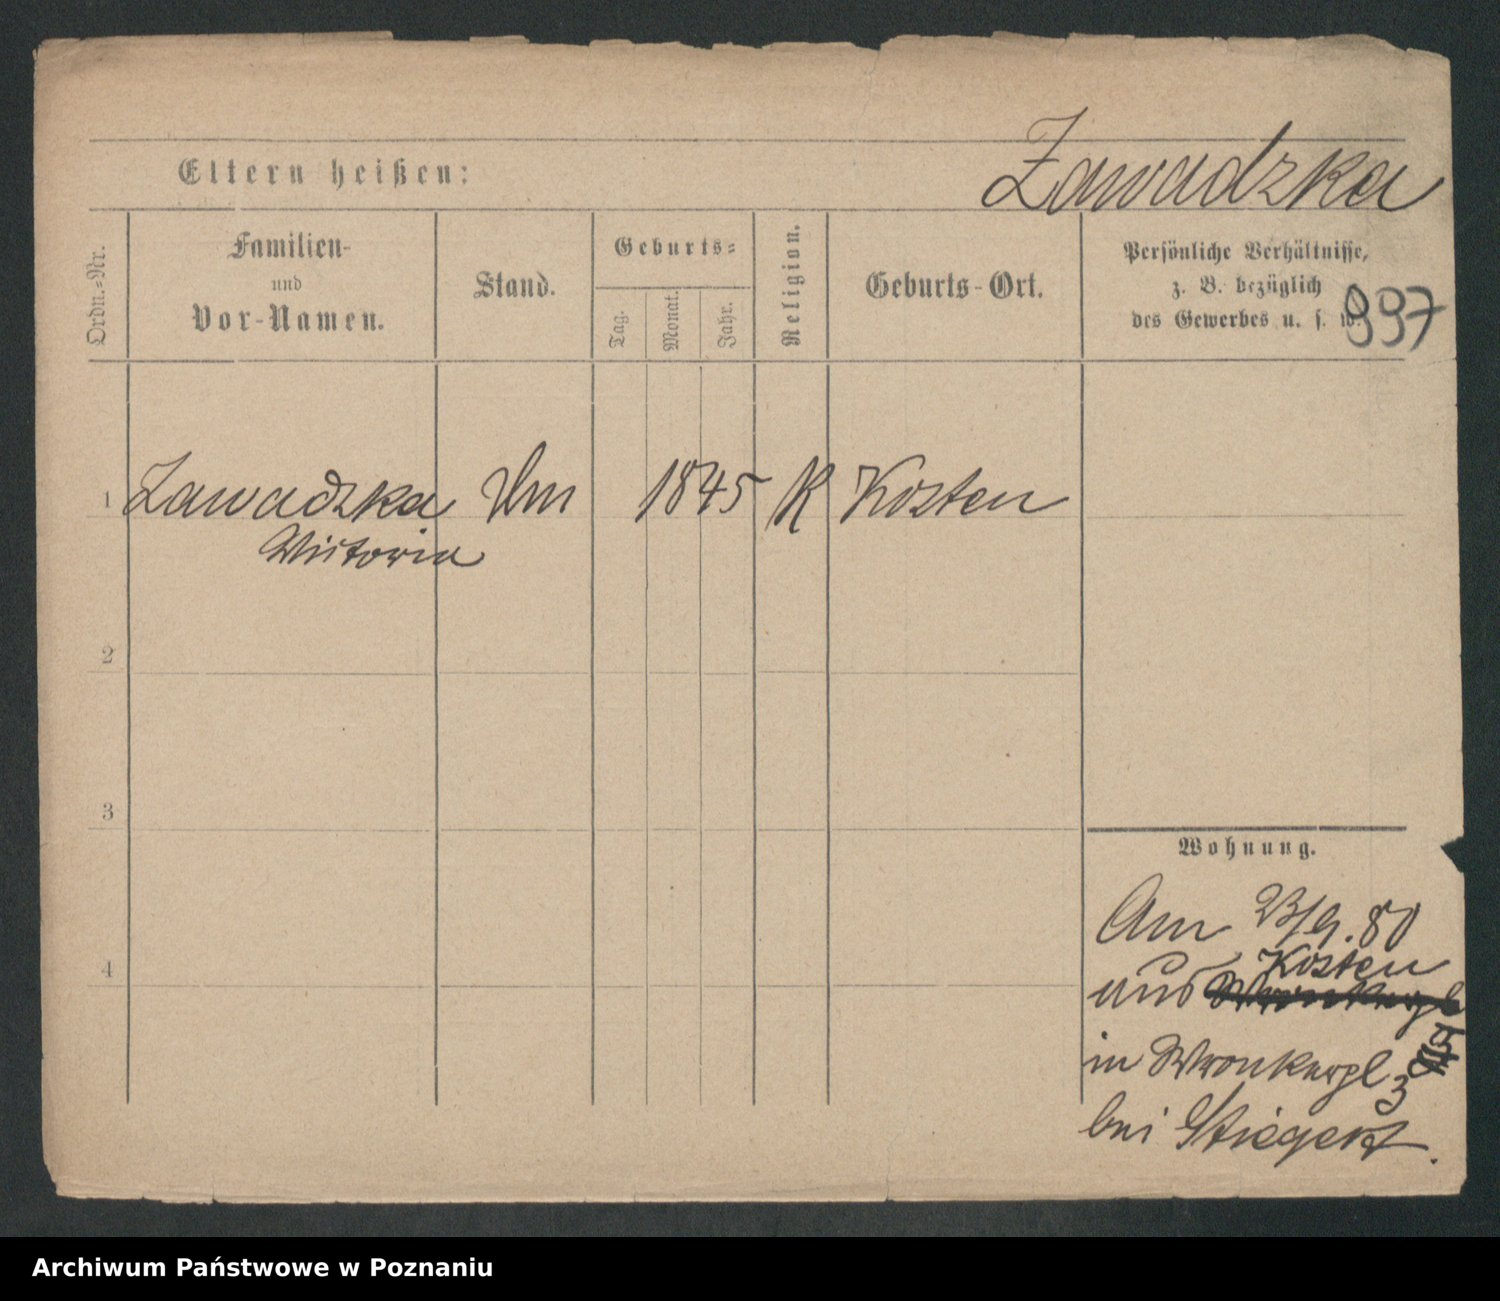 Eltern heißen:
Zawadzka
Ordn.=Nr.
Familien-
und
Vor-Namen.
Stand.
Geburts=
Tag.
Monat.
Jahr.
Religion.
Geburts-Ort.
Persönliche Verhältnisse,
z. B. bezüglich
des Gewerbes u. s. w.
997
1 Zawadzka 1845 K Kosten
Victoria
2
3
4
Wohnung.
Am 23/9. 80
Kosten
aus
in Wronkergl 3
bei Stiegert.
Archiwum Państwowe w Poznaniu